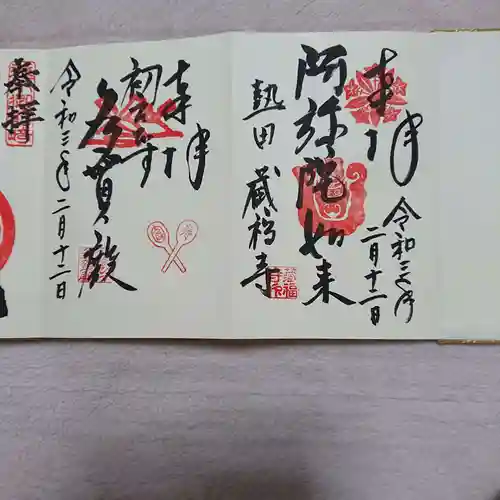 奉拝
令和三年二月十二日
阿弥陀如来
熱田 蔵福寺
蔵福寺印
奉拝
初えびす
多賀殿
令和三年二月十二日
奉拝